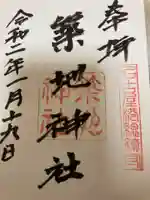 奉拝
築地神社
令和二年一月十九日